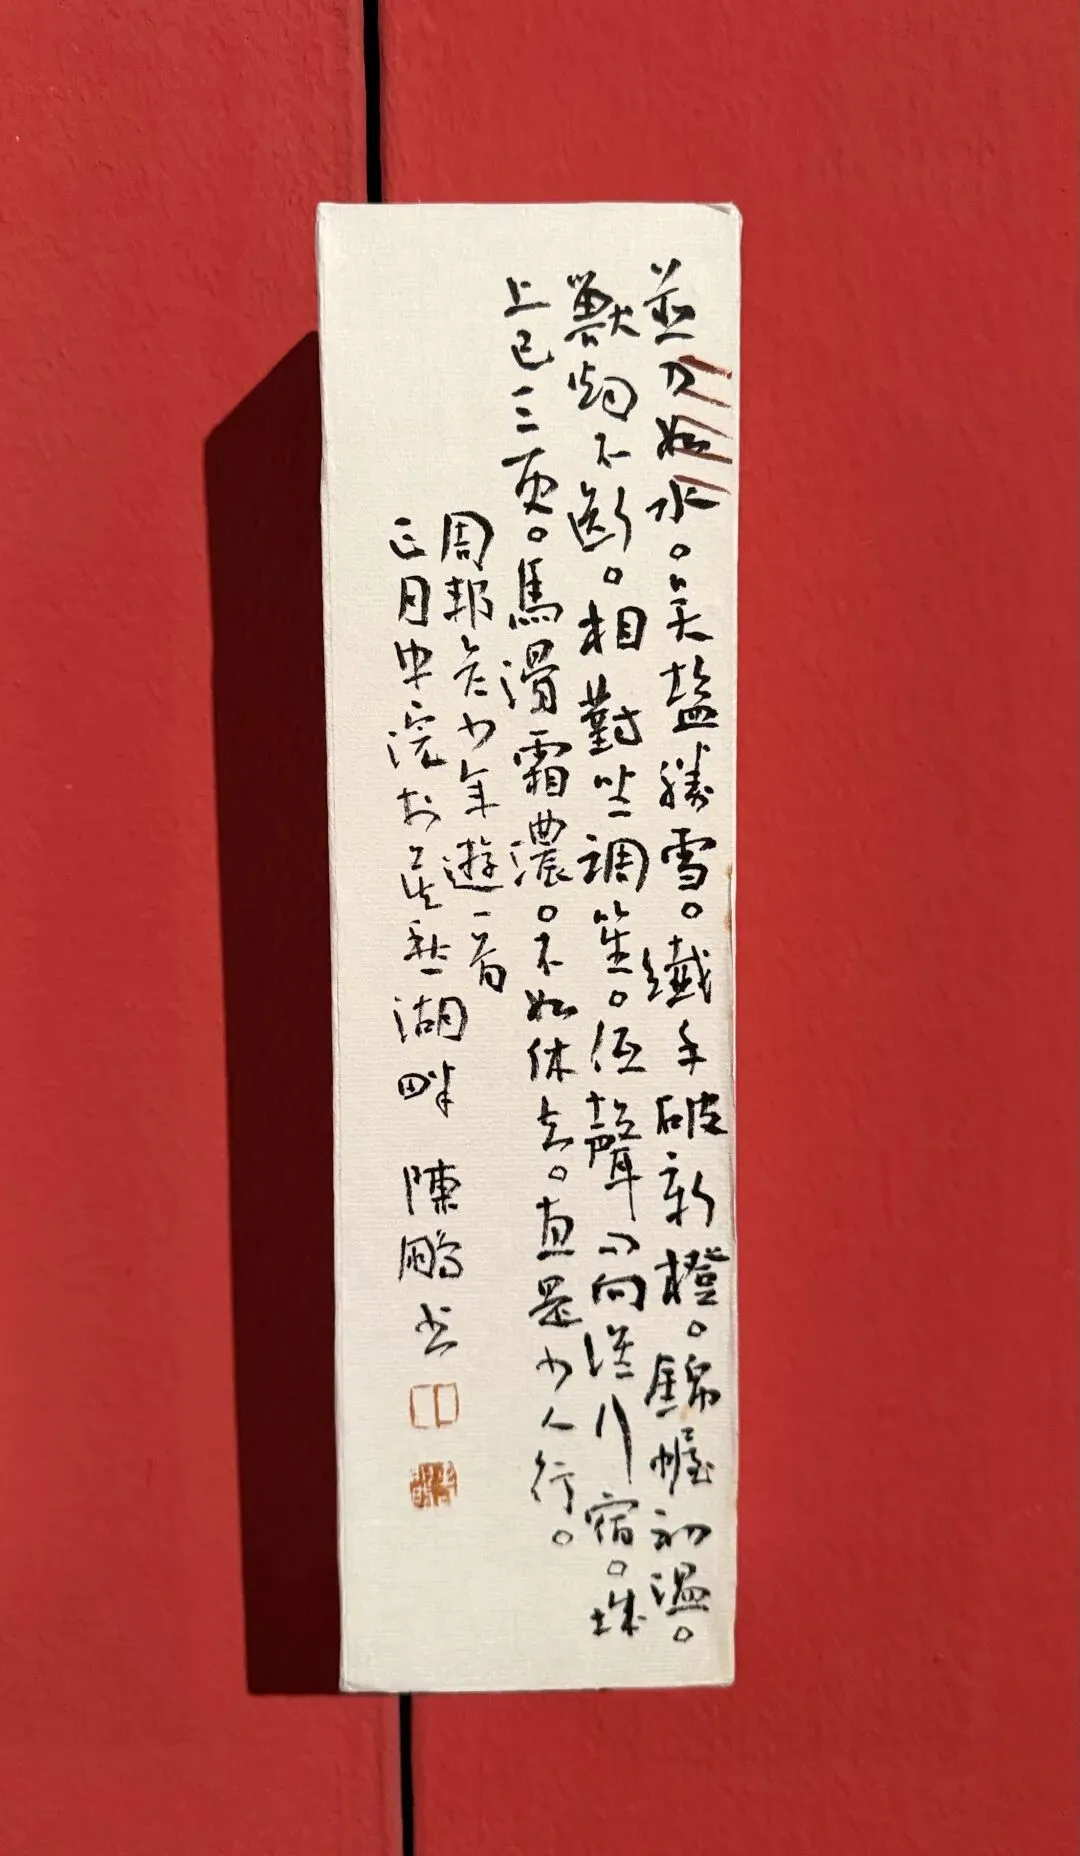 並刀如水。吳塩勝雪。纖手破新橙。錦幄初溫。
獸烟不斷。相對坐調笙。低聲問向誰行宿。城
上已三更。馬滑霜濃。不如休去。直是少人行。
周邦彥少年遊一首
正月中浣於莫愁湖畔 陳鵬書